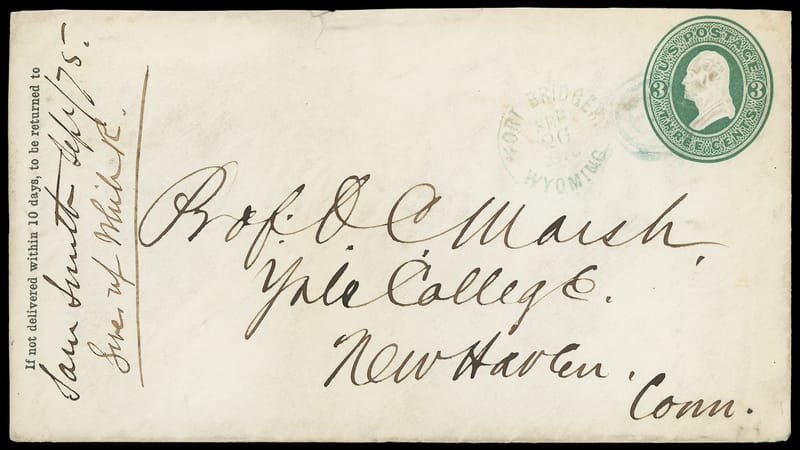 If not delivered within 10 days, to be returned to
Sam Smith Sept/75.
U.S. POSTAGE
3 3
THREE CENTS
FORT BRIDGER
SEP
26
WYOMING
Prof. O C Marsh,
Yale College.
New Haven.
Conn.